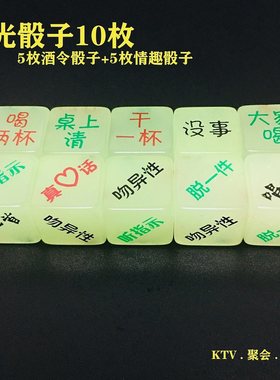 光骰子10枚
5枚酒令骰子+5枚情趣骰子
喝
两杯
桌上
清
干
一杯
没事
大家
喝
真♡话
吻异性
脱一件
吻异性
听指示
吻异性
吻异性
脱一件
KTV . 聚会 .